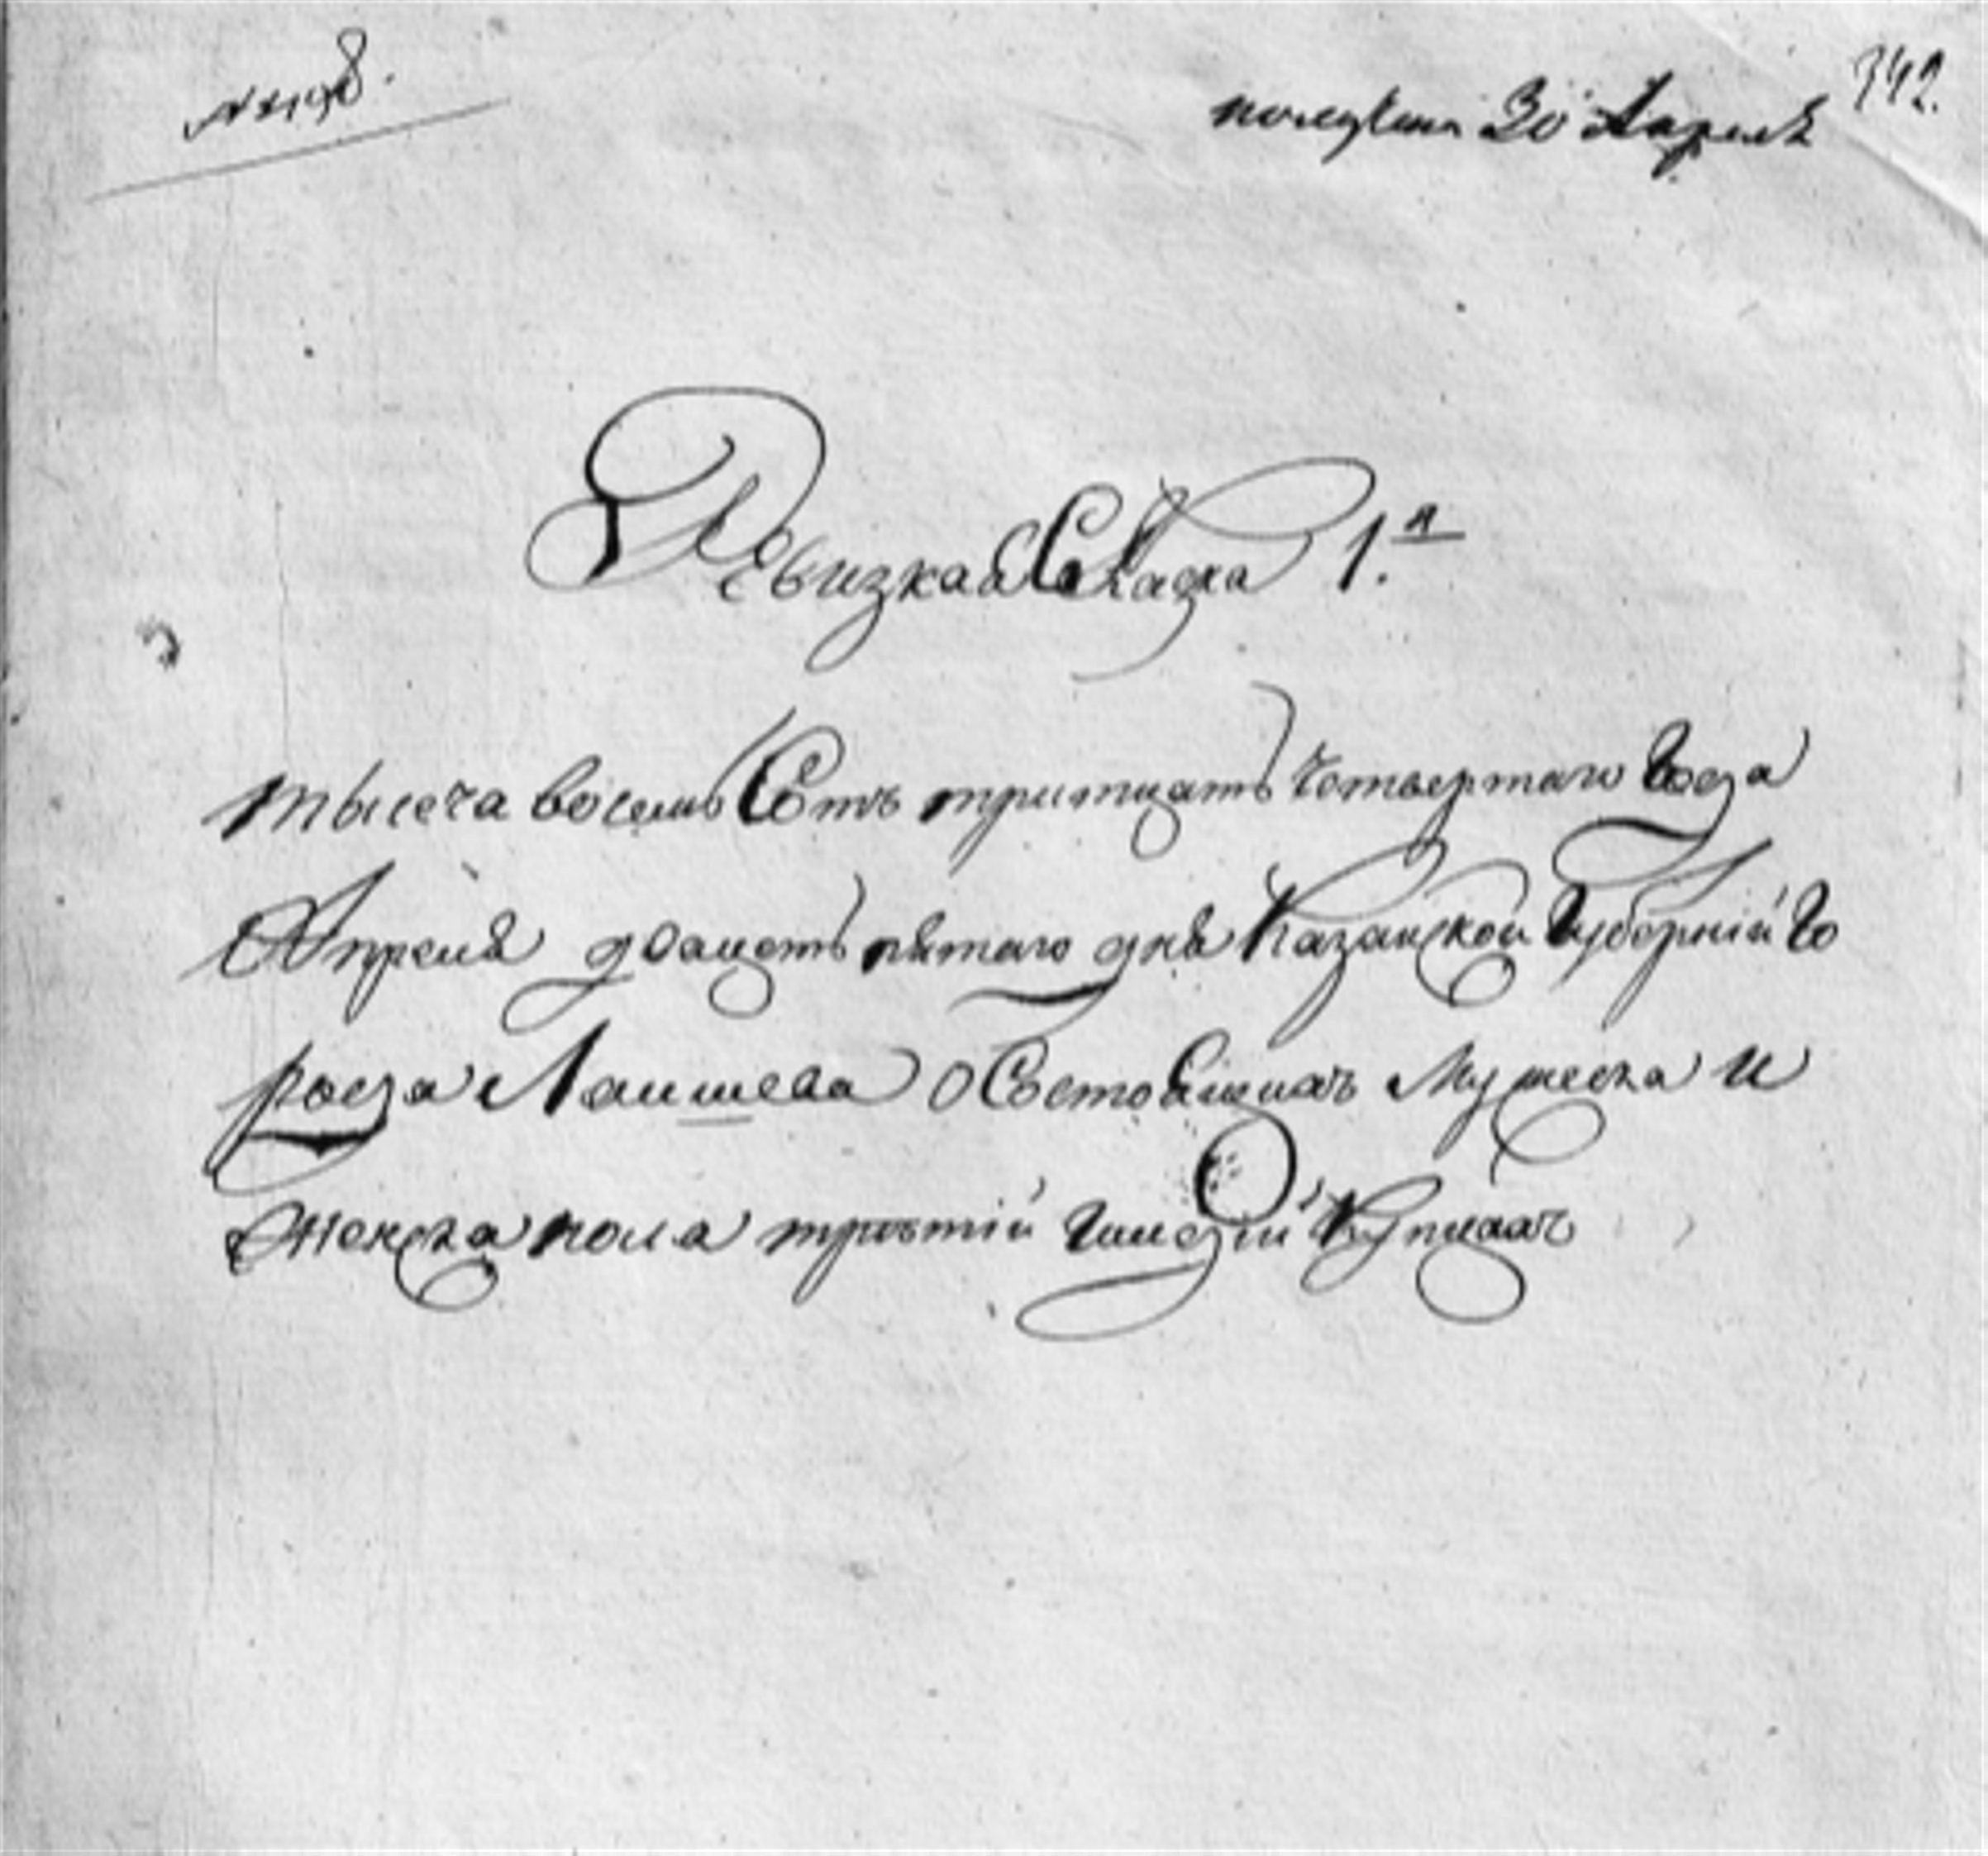 342.
получена 30 Апреля
Ревизкая Сказка 1.я
тысеча восемь Сотъ тритцать четвертаго Года
Апреля двацеть пятаго дня Казанской Губерній Го
рода Лаишева О Состоящихъ Мужеска и
Женска пола третіи Гилдіи Купцахъ